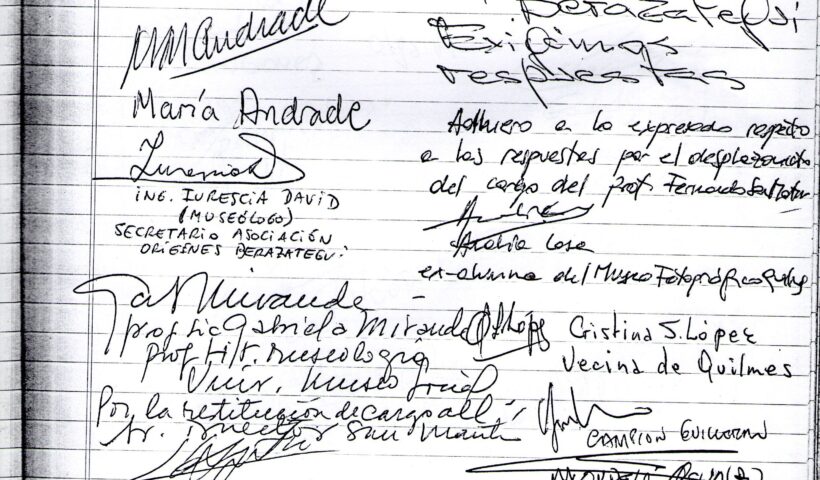 MMAndrade
María Andrade
ING. IURESCIA DAVID
(MUSEÓLOGO)
SECRETARIO ASOCIACIÓN
ORIGENES BERAZATEGUI
Berazategui
Exigimos
respuestas
Adhiero a lo expresado respecto
a las respuestas por el desplazamiento
del cargo del prof. Fernando San Martin
ex-alumna del Museo Fotográfico Quilmes
Prof. Lic Gabriela Miranda
prof. Hist. Museología
Univ. Museo Social
Por la restitución de cargo al
Sr. Director San Martin
Cristina S. López
Vecina de Quilmes
CAMPION GUILLERMO